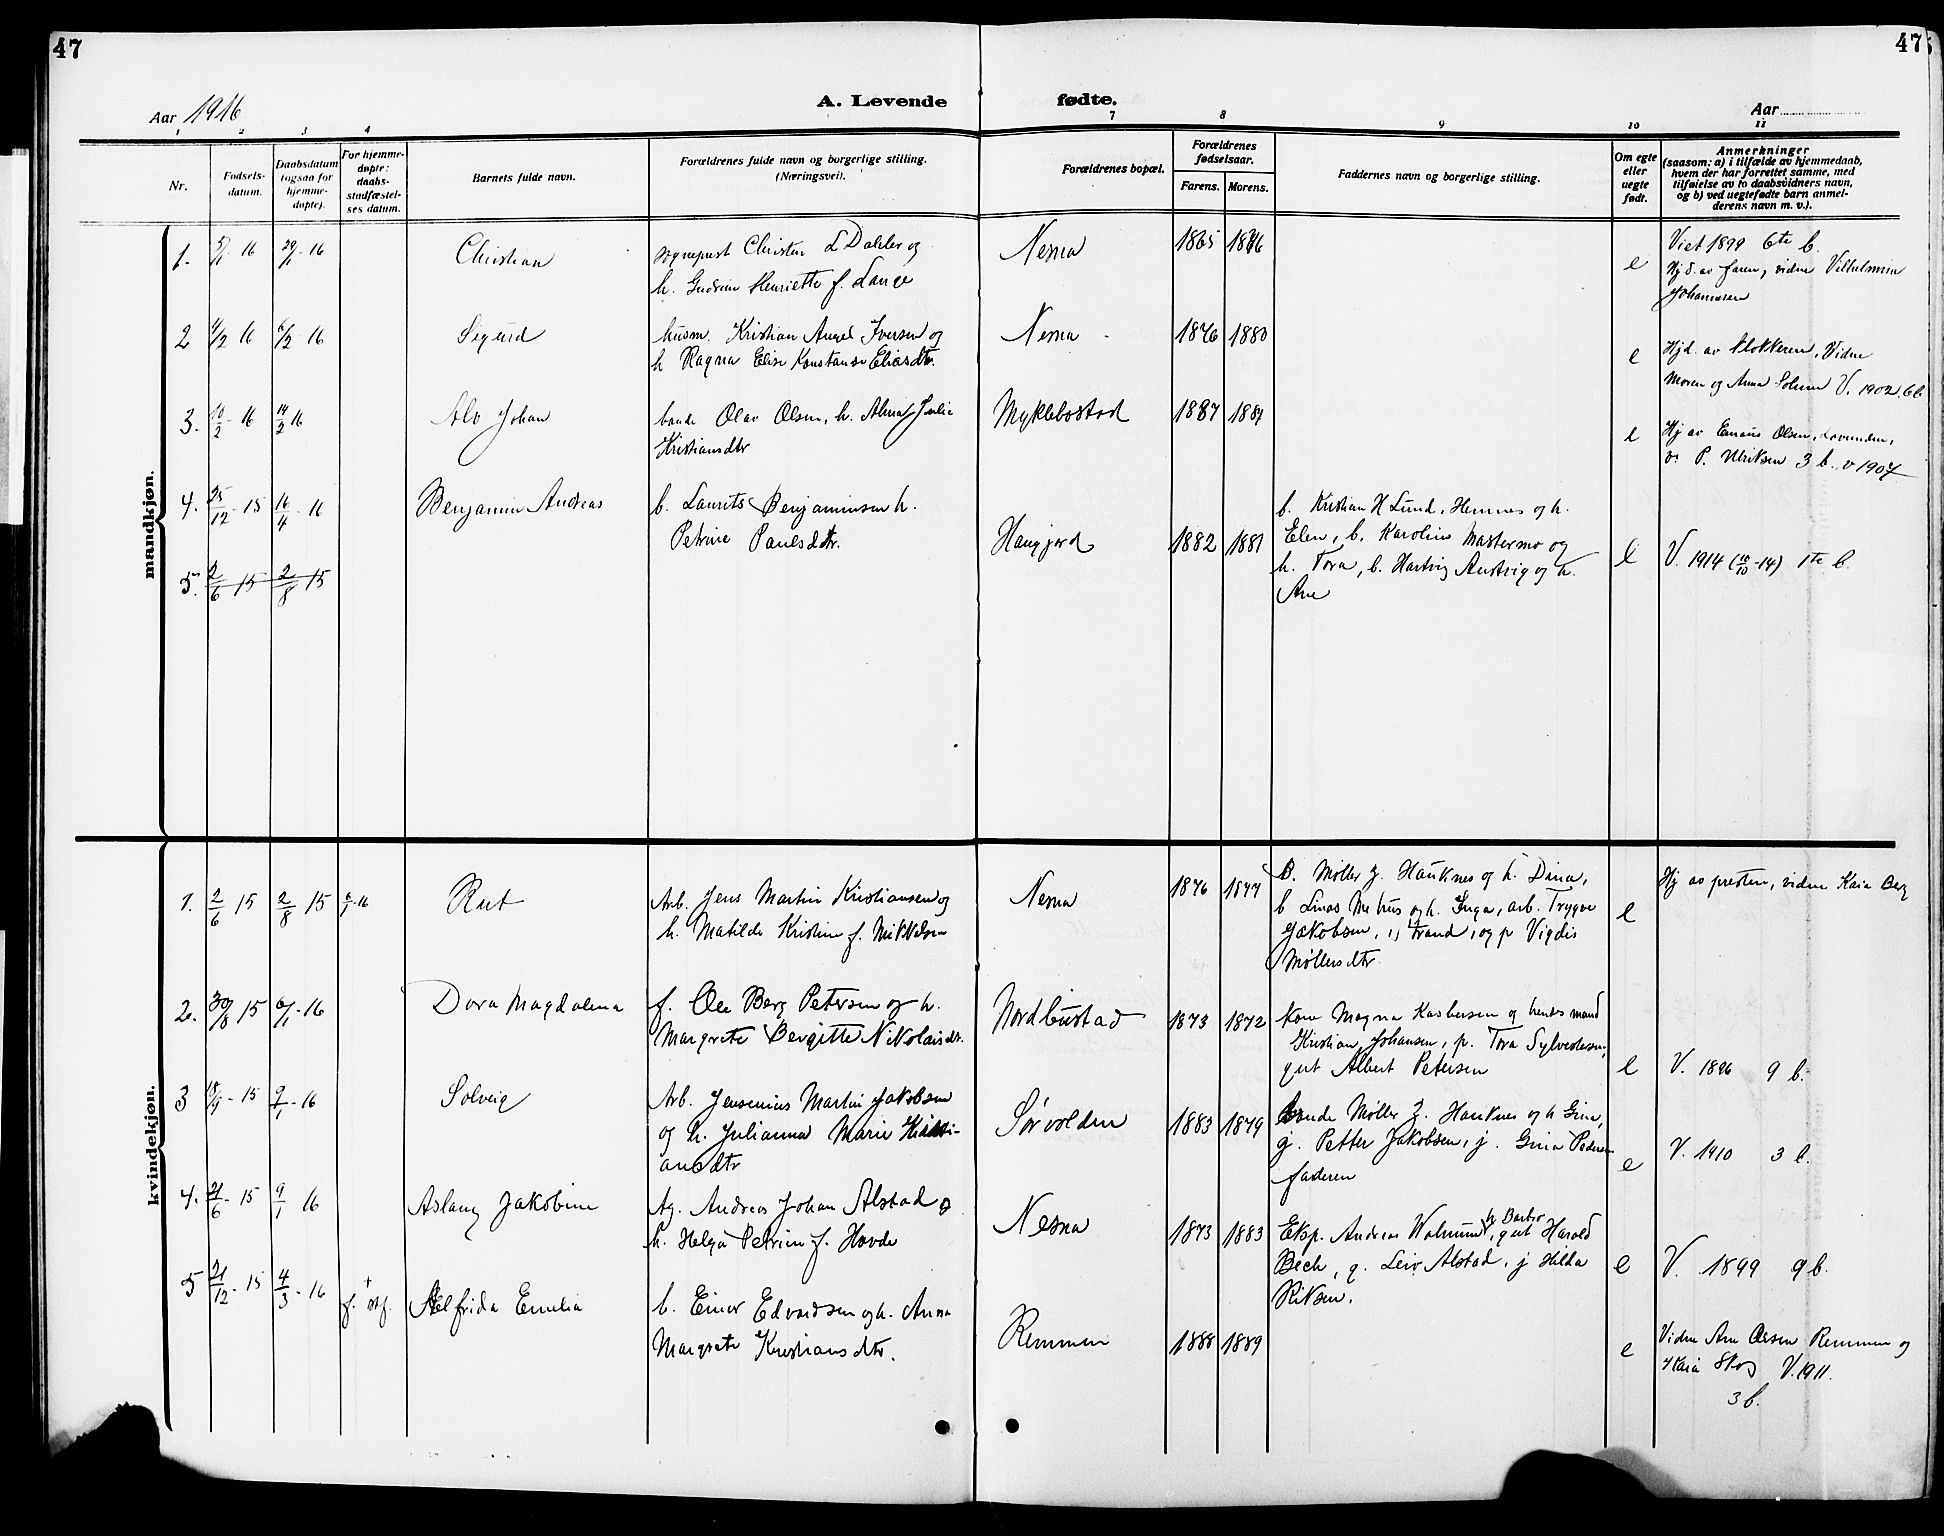 47
47
Aar 1916
A. Levende fødte.
Aar
1 2 3 4 7 8 9 10 11
Nr.
Fødsels-
datum.
Daabsdatum
(ogsaa for
hjemme-
døpte).
For hjemme-
døpte:
daabs-
stadfæstel-
ses datum.
Barnets fulde navn.
Forældrenes fulde navn og borgerlige stilling.
(Næringsvei).
Forældrenes bopæl.
Forældrenes
fødselsaar.
Farens. Morens.
Faddernes navn og borgerlige stilling.
Om egte
eller
uegte
født.
Anmerkninger
(saasom: a) i tilfælde av hjemmedaab,
hvem der har forrettet samme, med
tilføielse av to daabsvidners navn,
og b) ved uegtefødte barn anmel-
derens navn m. v.).
mandkjøn.
1. 5/1 16 29/1 - 16 Christian
sogneprest Christen L Dahler og
h. Gudrun Henriette f. Lange
Nesna 1865 1876 e
Viet 1899 6te b.
Hj d. av faren, vidne Vilhelmine
Johannesen
2 4/2 16 6/2 - 16 Sigurd
husm. Kristian Angel Iversen og
h Ragna Elise Konstanse Eliasdtr.
Nesna 1876 1880 e
Hjd. av klokkeren, Vidne
Moren og Anna Solum V. 1902. 6 b.
3. 10/2 - 16 14/2 16 Alv Johan
bonde Olav Olsen, h. Alma Julie
Kristiansdtr
Myklebostad 1887 1884 e
Hj av Emaus Olsen, Lovunden,
v. P. Ulriksen 3 b. v 1907
4. 25/12 - 15 16/4 - 16 Benjamin Andreas
b. Laurits Benjaminsen h.
Petrine Paulsdtr.
Haugjord 1882 1881
b. Kristian H Lund, Hemnes og h.
Elen, b. Karolius Mastermo og
h. Tora, b. Hartvig Austvig og h.
Ane
e V. 1914 (10/10 - 14) 1te b.
5. 2/6 15 2/8 15
kvindekjøn.
1. 2/6 15 2/8 15 6/1 - 16 Rut
Arb. Jens Martin Kristiansen og
h. Matilde Kristine f. Mikkelsen
Nesna 1876 1877
B. Møller Z. Hauknes og h. Dina,
b Linas Mehus og h. Inga, arb. Trygve
Jakobsen, Strand, og p Vigdis
Møllersdtr.
e Hj av presten, vidne Kaia Berg
2. 30/8 15 6/1 - 16 Dora Magdalena
f. Ole Berg Petersen og h.
Margrete Bergitte Nikolaisdtr.
Nordbustad 1873 1872
Kone Magna Kasbersen og hendes mand
Kristian Johansen, p. Tora Sylvestersen,
gut Albert Petersen
e V. 1896 9 b.
3 18/9 - 15 9/1 - 16 Solveig
Arb. Jensenius Martin Jakobsen
og h. Julianna Marie Kristi-
ansdtr
Sørvolden 1883 1879
Bonde Møller Z. Hauknes og h Gina,
g. Petter Jakobsen, j. Gina Pedersen
faderen
e V. 1910 3 b.
4. 21/6 - 15 9/1 16 Aslaug Jakobine
Ag. Andreas Johan Alstad o
h. Helga Petrine f. Hovde
Nesna 1873 1883
Eksp. Andreas Walnum h Barbro, gut Harald
Bech, g. Leiv Alstad, j Hilda
Riksen.
e V. 1899 9 b.
5 21/12 - 15 4/3 - 16 Alfrida Emelia
b. Einar Edvardsen og h. Anna
Margrete Kristiansdtr.
Remmen 1888 1889 e
Vidne Ane Olesen Remmen og
Kaia Skog V. 1911.
3 b.